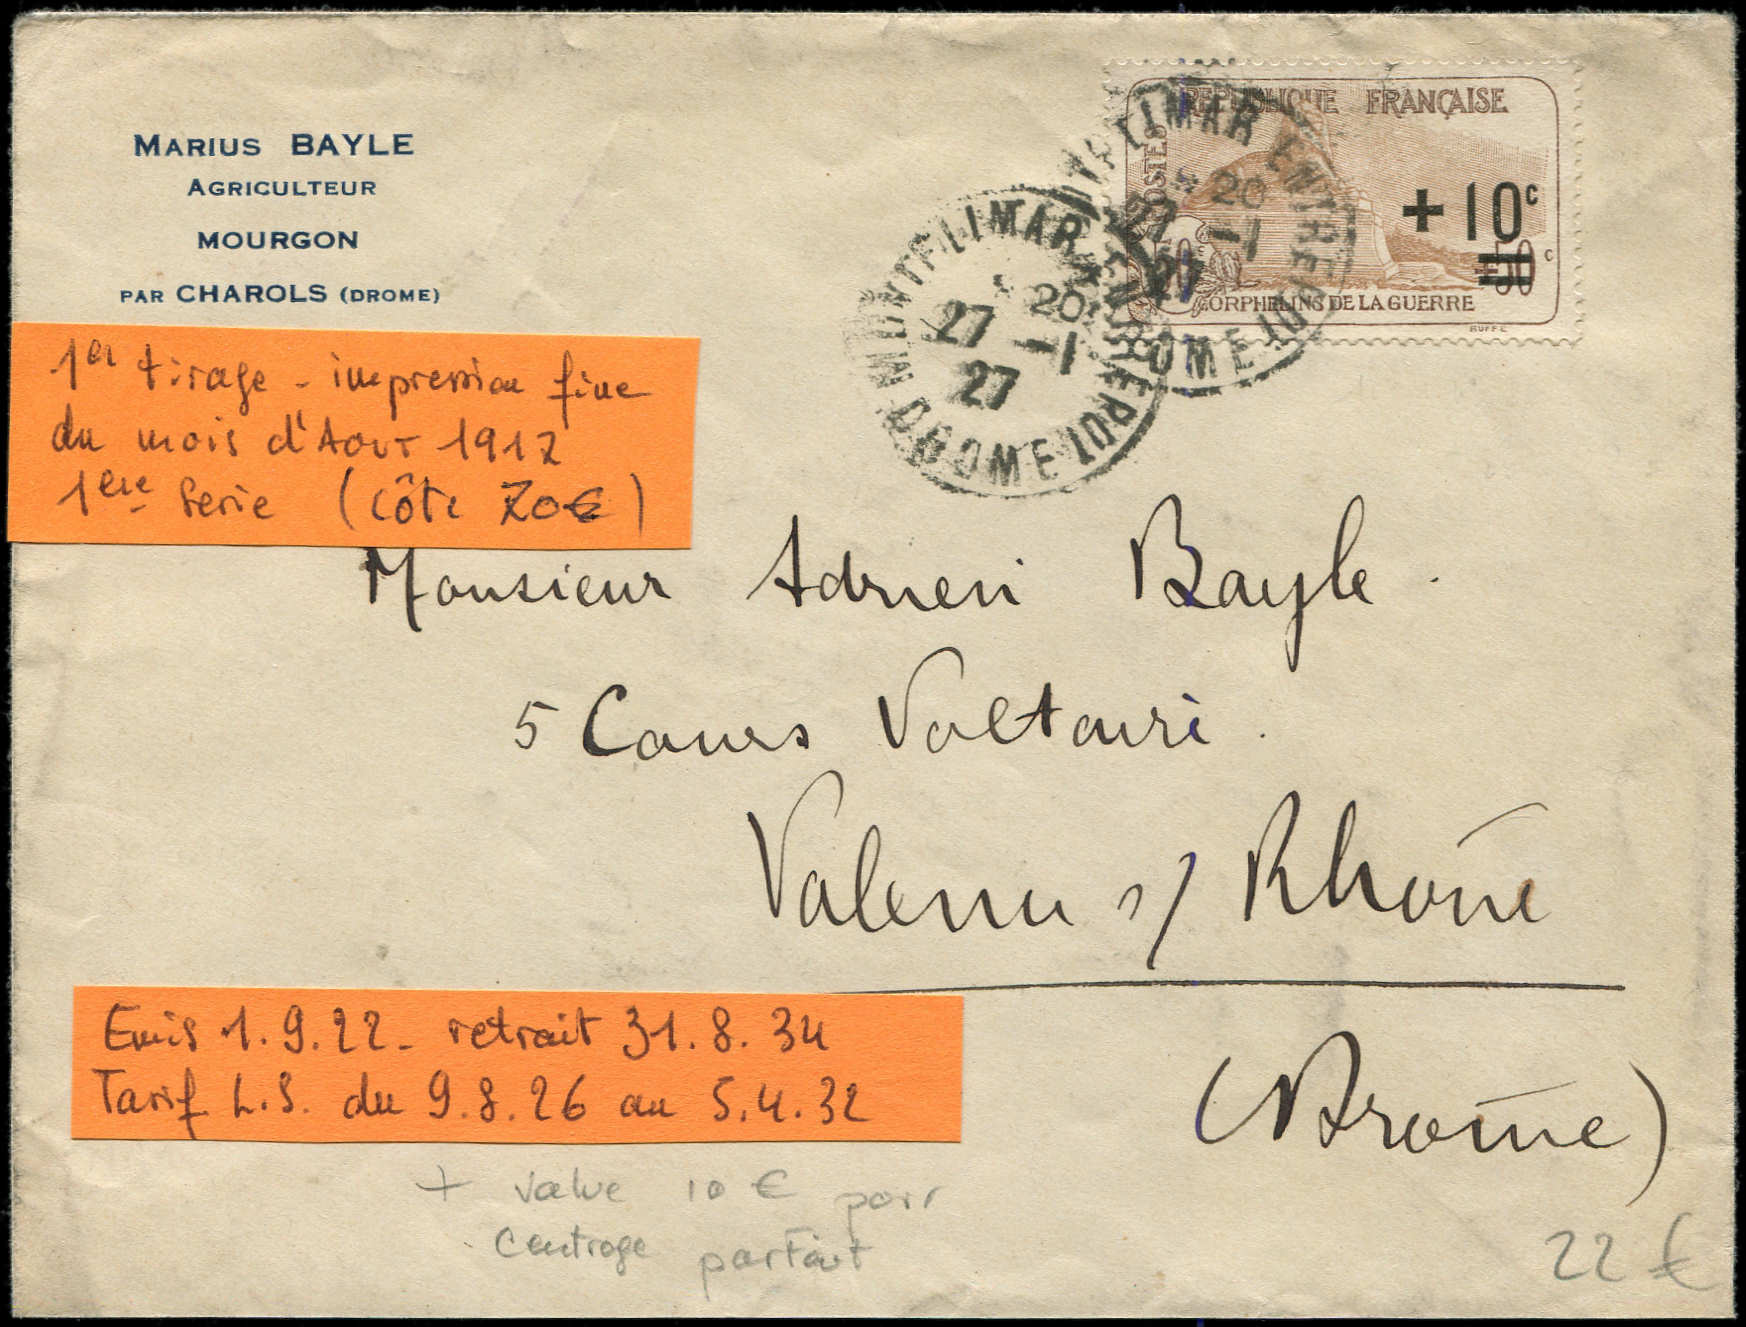 MARIUS BAYLE
AGRICULTEUR
MOURGON
PAR CHAROLS (DROME)
REPUBLIQUE FRANÇAISE
POSTES
+ 10c
50 + 50 c
ORPHELINS DE LA GUERRE
RUFFE
MONTELIMAR ENTREPOT DROME
* 20
27 -1
27
MONTELIMAR ENTREPOT DROME
* 20
27 -1
27
1er tirage - impression fine
du mois d'Aout 1917
1ere Serie (Côte 70€)
Monsieur Adrien Bayle.
5 Cours Voltaire.
Valence s/ Rhône
(Drôme)
Emis 1.9.22 - retrait 31.8.34
Tarif L.S. du 9.8.26 au 5.4.32
+ value 10 € pour
centrage parfait
22 €